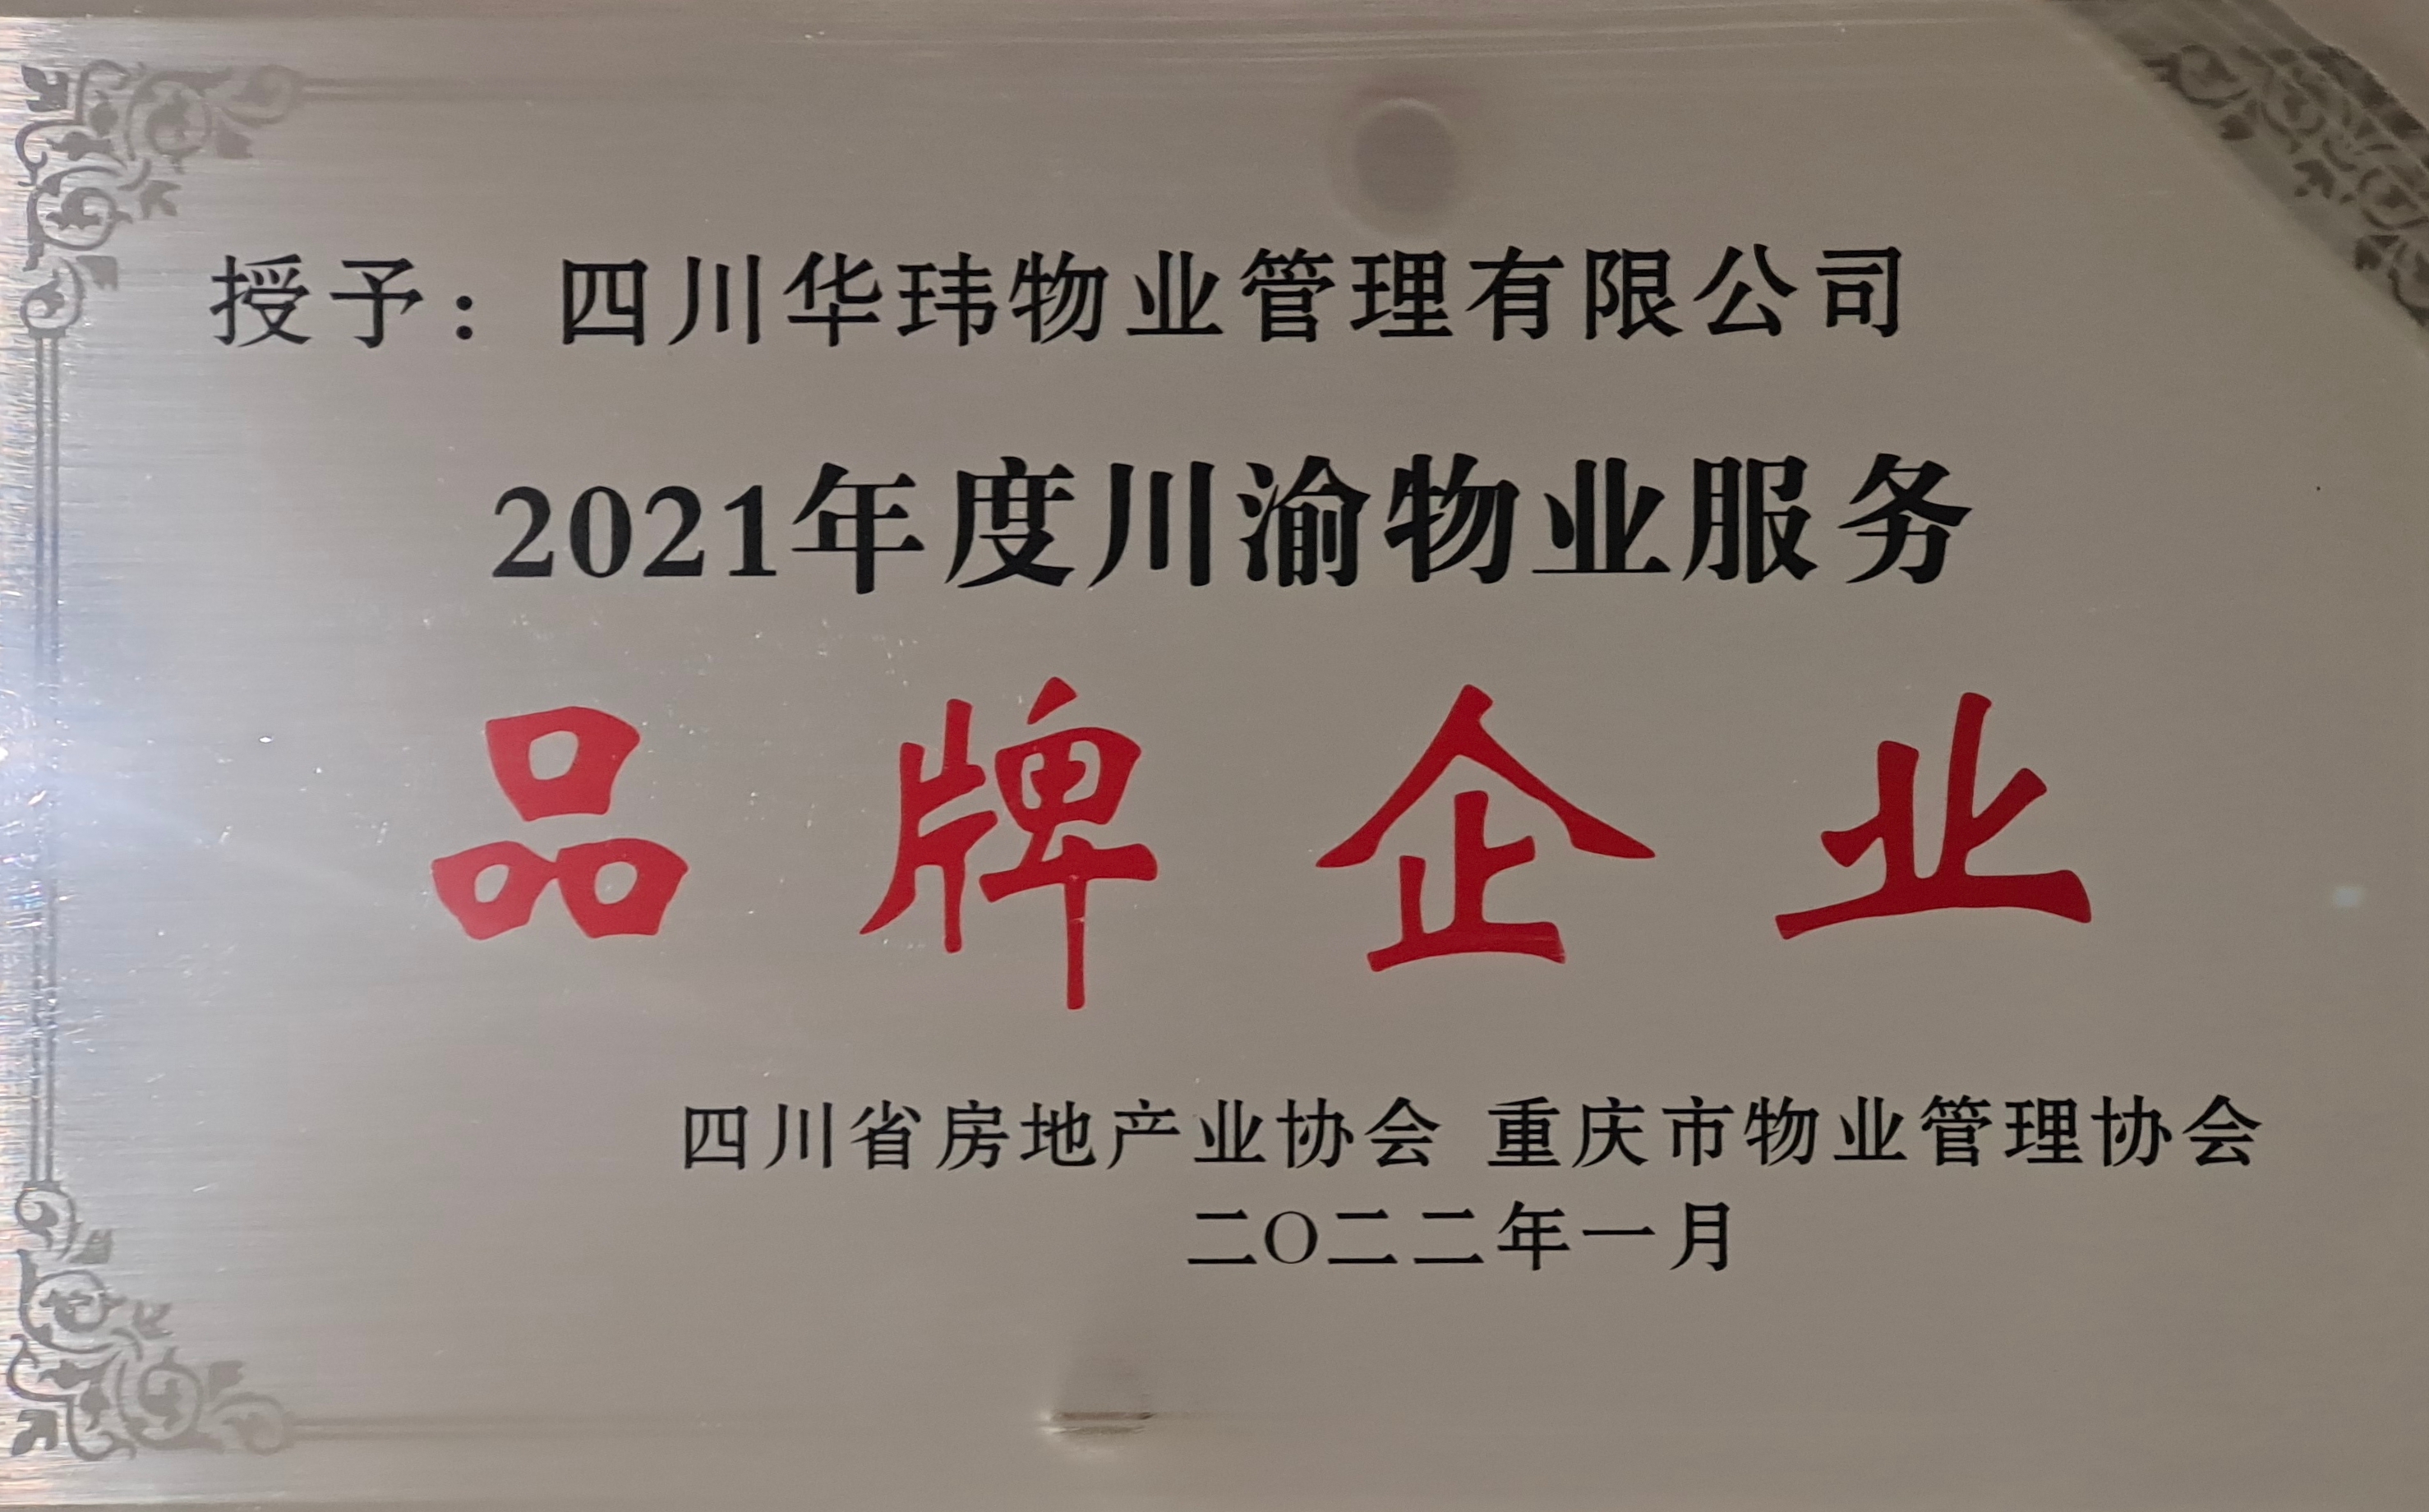 授予：四川华玮物业管理有限公司
2021年度川渝物业服务
品牌企业
四川省房地产业协会 重庆市物业管理协会
二〇二二年一月